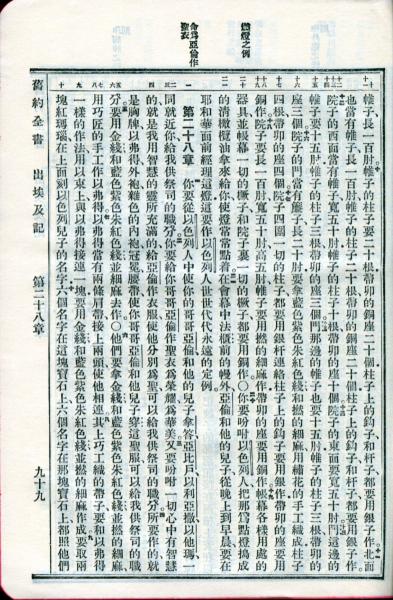 燃燈之例
命為亞倫作
聖衣
帷子長一百肘帷子的柱子要二十根帶卯的銅座二十個柱子上的鈎子和杆子都要用銀子作北面
也當有帷子長一百肘帷子的柱子二十根帶卯的銅座二十個柱子上的鈎子和杆子都要用銀子作
院子的西面當有帷子寬五十肘帷子的柱子十根帶卯的座十個院子的東面要寬五十肘門這邊的
帷子要十五肘帷子的柱子三根帶卯的座三個門那邊的帷子也要十五肘帷子的柱子三根帶卯的
座三個院子的門當有簾子長二十肘要拿藍色紫色朱紅色綫和撚的細麻用繡花的手工織成柱子
四根帶卯的座四個院子四圍一切的柱子都要用銀杆連絡柱子上的鈎子要用銀作帶卯的座要用
銅作院子要長一百肘寬五十肘高五肘帷子要用撚的細麻作帶卯的座要用銅作帳幕各樣用處的
器具並帳幕一切的橛子和院子裏一切的橛子都要用銅作〇你要吩咐以色列人把那為點燈搗成
的清橄欖油拿來給你使燈常常點着在會幕中法櫃前的幔外亞倫和他的兒子從晚上到早晨要在
耶和華面前經理這燈這要作以色列人世世代代永遠的定例
第二十八章 你要從以色列人中使你的哥哥亞倫和他的兒子拿答亞比戶以利亞撒以他瑪一
同就近你給我供祭司的職分你要給你哥哥亞倫作聖衣為榮耀為華美又要吩咐一切心中有智慧
的就是我用智慧的靈所充滿的給亞倫作衣服使他分別為聖可以給我供祭司的職分所要作的就
是胸牌以弗得外袍雜色的內袍冠冕腰帶使你哥哥亞倫和他兒子穿這聖服可以給我供祭司的職
分要用金綫和藍色紫色朱紅色綫並細麻去作〇他們要拿金綫和藍色紫色朱紅色綫並撚的細麻
用巧匠的手工作以弗得以弗得當有兩條肩帶接上兩頭使他相連其上巧工織的帶子要和以弗得
一樣的作法用以束上與以弗得接連一塊要用金綫和藍色紫色朱紅色綫並撚的細麻作成要取兩
塊紅瑪瑙在上面刻以色列兒子的名字六個名字在這塊寶石上六個名字在那塊寶石上都照他們
舊約全書 出埃及記 第二十八章 九十九